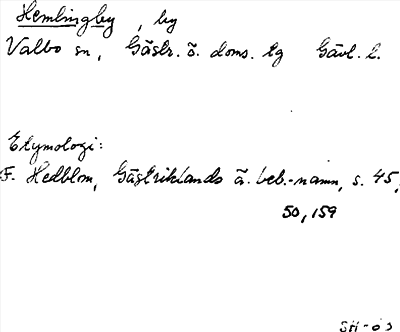 Hemlingby, by
Valbo sn, Gästr. ö. doms. tg Gävl. l.
Etymologi:
F. Hedblom, Gästriklands ä. beb.-namn, s. 45,
50, 159